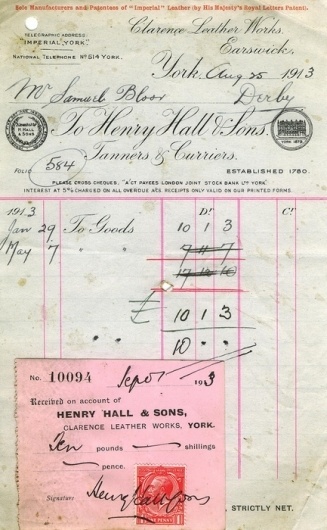 Sole Manufacturers and Patentees of "Imperial" Leather (by His Majesty's Royal Letters Patent).
Clarence Leather Works,
TELEGRAPHIC ADDRESS
"IMPERIAL, YORK."
Earswick,
NATIONAL TELEPHONE No 514 YORK.
York, Aug 25 1913
Mr Samuel Bloor Derby
To Henry Hall & Sons,
H. HALL & SONS
Tanners & Curriers.
FOLIO 584 ESTABLISHED 1780.
PLEASE CROSS CHEQUES, "A/CT PAYEES LONDON JOINT STOCK BANK LTD YORK"
INTEREST AT 5% CHARGED ON ALL OVERDUE A/CS RECEIPTS ONLY VALID ON OUR PRINTED FORMS.
1913 Dr Cr
Jan 29 To Goods 10 1 3
May 7 " " 7 11 7
17 12 10
£ 10 1 3
" " 10 " "
No. 10094 Sep 01 1913
Received on account of
HENRY HALL & SONS,
CLARENCE LEATHER WORKS, YORK.
Ten pounds — shillings
— pence.
Signature Henry Hall & Sons
ONE PENNY
STRICTLY NET.